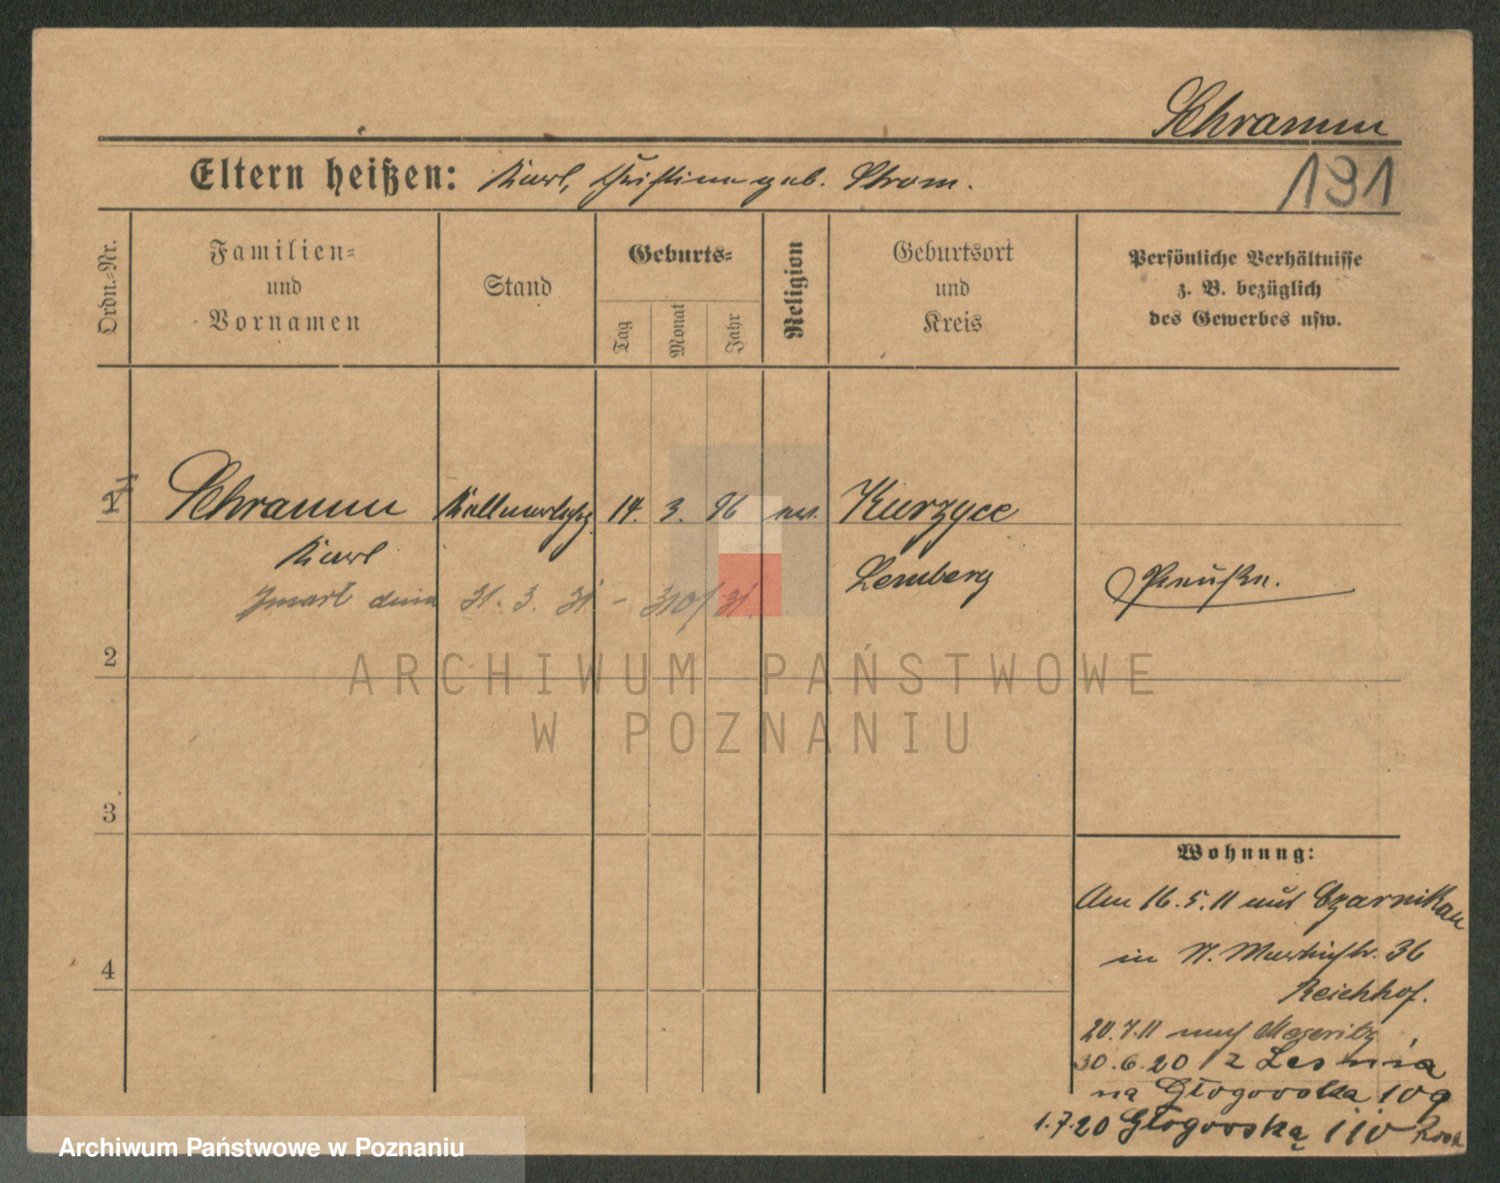 Schramm
Eltern heißen: Karl, Christine geb. Strom.
191
Ordn.-Nr.
Familien-
und
Vornamen
Stand
Geburts-
Tag
Monat
Jahr
Religion
Geburtsort
und
Kreis
Persönliche Verhältnisse
z. B. bezüglich
des Gewerbes usw.
1 Schramm Kellnerlehrlg 14. 3. 96 ev. Kurzyce
Karl Lemberg Preuße.
Zmarł dnia 31. 3. 31 - 310/31
2
ARCHIWUM PAŃSTWOWE
W POZNANIU
3
Wohnung:
Am 16.5.11 aus Czarnikau
in St. Martinstr. 36
4
Reichhof.
20.7.11 nach Meseritz
30.6.20 z Leszna
na Głogowska 109
1.7.20 Głogowską 110
Archiwum Państwowe w Poznaniu